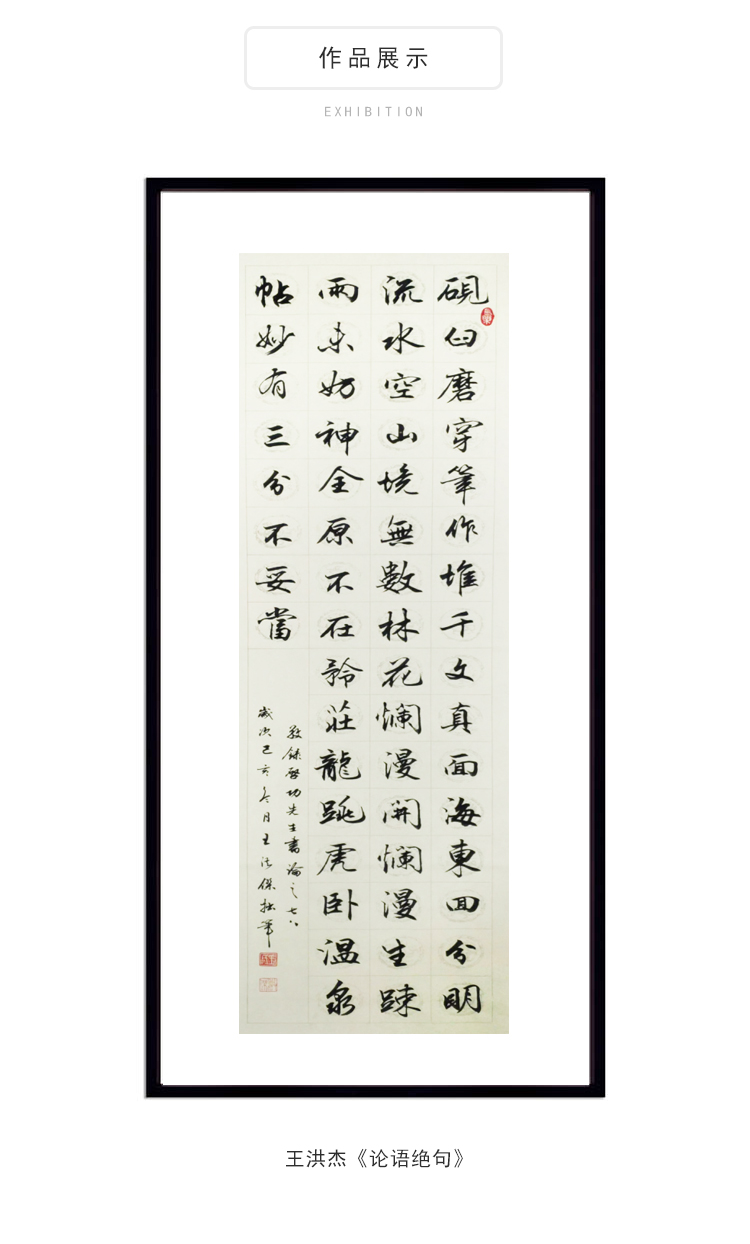 作品展示
EXHIBITION
硯臼磨穿筆作堆千文真面海東回分明
流水空山境無數林花爛漫開爛漫生疎
雨未妨神全原不在矜莊龍跳虎卧温泉
帖妙有三分不妥當
敬録啓功先生書論之七八
歲次己亥冬月王洪傑拙筆
王洪杰《论语绝句》